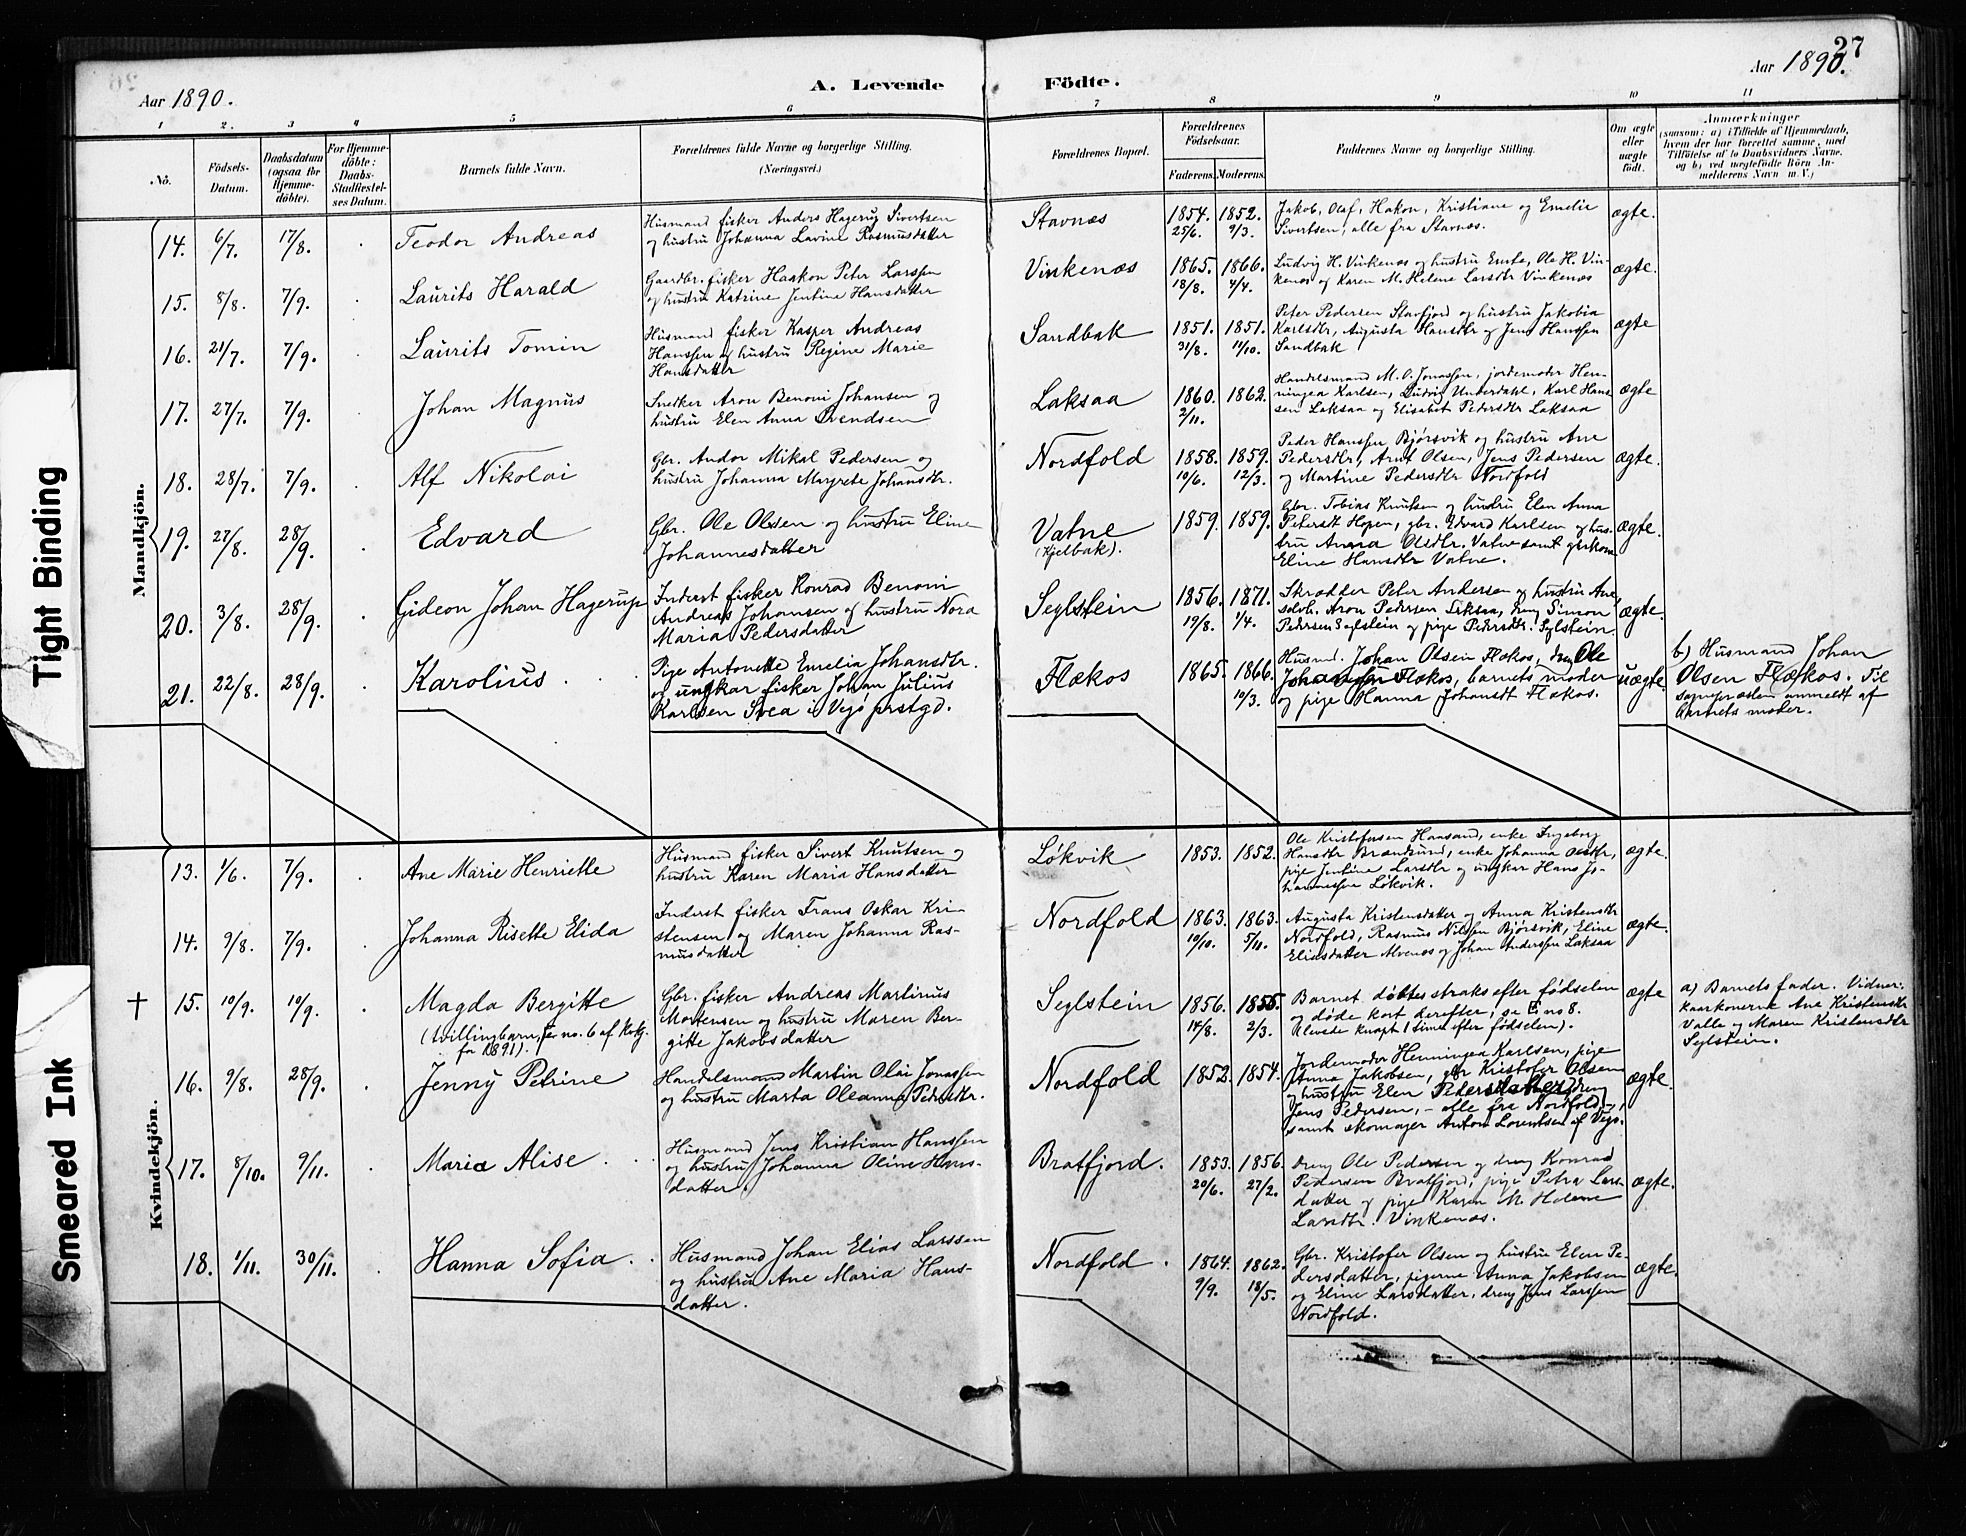 27
Aar 1890.
A. Levende Födte.
Aar 1890.
1 2. 3 4 5 6 7 8 9 10 11
No.
Födsels-
Datum.
Daabsdatum
(ogsaa for
Hjemme-
döbte).
For Hjemme-
döbte:
Daabs-
Stadfæstel-
ses Datum.
Barnets fulde Navn.
Forældrenes fulde Navne og borgerlige Stilling.
(Næringsvei.)
Forældrenes Bopæl.
Forældrenes
Födselsaar.
Faderens. Moderens.
Faddernes Navne og borgerlige Stilling.
Om ægte
eller
uægte
födt.
Anmærkninger
(saasom: a) i Tilfælde af Hjemmedaab,
hvem der har forrettet samme, med
Tilföielse af to Daabsvidners Navne.
og b) ved uægtefödte Börn An-
melderens Navn m. V.)
Mandkjön.
14. 6/7. 17/8. Teodor Andreas
Husmand fisker Anders Hagerup Sivertsen
og hustru Johanna Lavine Rasmusdatter
Stavnæs
1854. 1852.
25/6. 9/3.
Jakob, Olaf, Hakon, Kristiane og Emelie
Sivertsen, alle fra Stavnæs.
ægte.
15. 8/8. 7/9. Laurits Harald
Gaardbr. fisker Haakon Peter Larssen
og hustru Katrine Jentine Hansdatter
Vinkenæs
1865. 1866.
18/8. 4/4.
Ludvig H. Vinkenæs og hustru Ole H. Vin-
kenæs og Karen M. Helene Larsdtr Vinkenæs
ægte.
16. 21/7. 7/9. Laurits Tomin
Husmand fisker Kasper Andreas
Hanssen og hustru Regine Marie
Hansdatter
Sandbak
1851. 1851.
31/8. 11/10.
Peter Pedersen Stavfjord og hustru Jakobia
Karlsdtr, Augusta Hansdtr og Jens Hanssen
Sandbak
ægte
17. 27/7. 7/9. Johan Magnus
Snedker Aron Benoni Johansen og
hustru Elen Anna Svendsen
Laksaa
1860. 1862.
2/11.
Handelsmand M. O. Jonassen, jordemoder Hen-
ningea Karlsen, Ludvig Underdahl, Karl Hans
sen Laksaa og Elisabet Pedersdtr Laksaa
ægte
18. 28/7. 7/9. Alf Nikolai
Gbr. Andor Mikal Pedersen og
hustru Johanna Margrete Johansdtr.
Nordfold
1858. 1859.
10/6. 12/3.
Peder Hanssen Bjørsvik og hustru Ane
Pedersdtr, Arnt Olsen, Jens Pedersen
og Martine Pedersdtr Nordfold
ægte.
19. 27/8. 28/9. Edvard
Gbr. Ole Olsen og hustru Eline
Johannesdatter
Vatne
(Kjelbak).
1859. 1859.
Gbr. Tobias Knutsen og hustru Elen Anna
Petersdt Hopen, gbr. Edvard Karlsen og hus-
tru Anna Olsdtr. Vatne samt
Eline Hansdtr Vatne.
ægte.
20. 3/8. 28/9. Gideon Johan Hagerup
Inderst fisker Konrad Benoni
Andreas Johansen og hustru Nora
Maria Pedersdatter
Seglstein
1856. 1871.
19/8. 1/4.
Skrædder Peter Andersen og hustru Ane,
Aron Pedersen Laksaa, dreng Simon
Pedersen Seglstein og pige Pedersdtr. Seglstein.
ægte.
21. 22/8. 28/9. Karolius
Pige Antonette Emelia Johansdtr.
og ungkar fisker Johan Julius
Karlsen Svea i Vegø prstgd.
Flækos
1865. 1866.
10/3.
Husmd. Johan Olsen Flækos, dreng Ole
Johansen Flækos, barnets moder
og pige Hanna Johansdt Flækos.
uægte.
b) Husmand Johan
Olsen Flækos. Til
sognepræsten anmeldt af
barnets moder.
Kvindekjön.
13. 1/6. 7/9. Ane Marie Henriette
Husmand fisker Sivert Knutsen og
hustru Karen Maria Hansdatter
Løkvik
1853. 1852.
Ole Kristofersen Haasand, enke Ingeborg
Hansdtr Brændsund, enke Johanna Olsdtr,
pige Jentine Larsdtr og ungkar Hans Jo-
hannessen Løkvik.
ægte.
14. 9/8. 7/9. Johanna Risette Elida
Inderst fisker Frans Oskar Kri-
stensen og Maren Johanna Ras-
musdatter
Nordfold
1863. 1863.
19/10. 5/11.
Augusta Kristensdatter og Anna Kristensdtr
Nordfold, Rasmus Nilsen Bjørsvik, Eline
Eliasdatter Alvenes og Johan Anderssen Laksaa
ægte.
† 15. 10/9. 10/9. Magda Bergitte
(tvillingbarn, se no. 6 af kvkj.
for 1891).
Gbr. fisker Andreas Martinus
Mortensen og hustru Maren Ber-
gitte Jakobsdatter
Seglstein
1856. 1855.
14/8. 2/3.
Barnet døbtes straks efter fødselen
og døde kort derefter, se E no 8.
(levede knapt 1 time efter fødselen).
ægte
a) Barnets fader. Vidner:
kaarkonerne Ane Kristensdtr
Valle og Maren Kristensdtr
Seglstein.
16. 9/8. 28/9. Jenny Petrine
Handelsmand Martin Olai Jonassen
og hustru Marta Oleanna Pedersdtr.
Nordfold
1852. 1854.
Jordemoder Henningea Karlsen, pige
Anna Jakobsen, gbr Kristofer Olsen
og hustru Elen Pedersdatter, dreng
Jens Pedersen, – alle fra Nordfold, –
samt skomager Anton Lorentsen af Vegø.
ægte.
17. 8/10. 9/11. Maria Alise
Husmand Jens Kristian Hanssen
og hustru Johanna Oline Hans-
datter.
Bratfjord.
1853. 1856.
20/6. 27/2.
dreng Ole Pedersen og dreng Konrad
Pedersen Bratfjord, pige Petra Lars-
datter og pige Karen M. Helene
Larsdtr. Vinkenæs.
ægte.
18. 1/11. 30/11. Hanna Sofia
Husmand Johan Elias Larssen
og hustru Ane Maria Hans-
datter.
Nordfold
1864. 1862.
9/9. 18/5.
Gbr. Kristofer Olsen og hustru Elen Pe-
dersdatter, pigerne Anna Jakobsen
og Eline Larsdatter, dreng Jens Larssen
Nordfold.
ægte.
Tight Binding
Smeared Ink